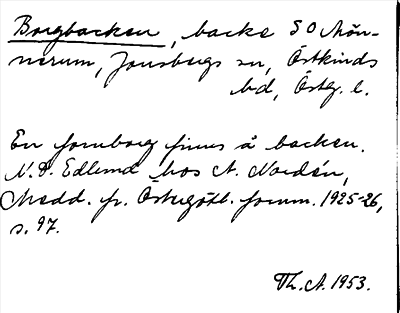 Borgbacken, backe SO Mön-
nerum, Jonsbergs sn, Östkinds
hd, Östg. l.
En fornborg finns å backen.
N. P. Edlund hos A. Nordén,
Medd. fr. Östergötl. fornm. 1925-26,
s. 97.
Th. A. 1953.